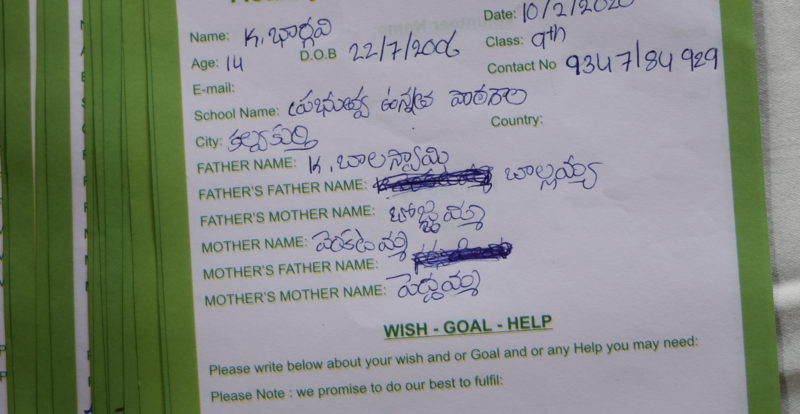 Date: 10/2/2020
Name: K. భార్గవి
Class: 9th
Age: 14 D.O.B 22/7/2006
Contact No 9347184929
E-mail:
School Name: ప్రభుత్వ ఉన్నత పాఠశాల
City: కల్వకుర్తి Country:
FATHER NAME: K. బాలస్వామి
FATHER'S FATHER NAME: బాల్లయ్య
FATHER'S MOTHER NAME: బోజ్జమ్మ
MOTHER NAME: వెంకటమ్మ
MOTHER'S FATHER NAME:
MOTHER'S MOTHER NAME: పెద్దమ్మ
WISH - GOAL - HELP
Please write below about your wish and or Goal and or any Help you may need:
Please Note : we promise to do our best to fulfil: